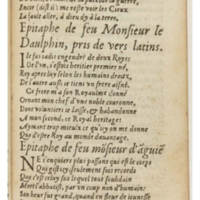 Encor (dist il) me reste voir les Cieux
La fault aller, à dieu dy à la terre,
Epitaphe de feu Monsieur le
Daulphin, pris de vers latins.
IE fus iadis engendré de deux Roys
De l'un, i'estois heritier premier né,
Roy apres luy selon les humains droix,
De l'autre aussi ie tiens un frere aisné.
Ce frere m'a son Royaulme donné
Ornant mon chef d'une noble couronne,
Dont voluntiers ie laisse, & habandonne
A mon second, ce Royal heritage:
Aymant trop mieulx ce qu'icy on me donne
Que d'estre Roy au monde davantage.
Epitaphe de feu mösieur d'aguié
NE t'enquiers plus passant qui est le corps
Qui gist icy, seulement fuz records
que c'est celuy sus lequel tout soubdain
Mort s'abbatist, par un coup non d'humain:
Son heur fut grand, quand en fleur de ieunesse